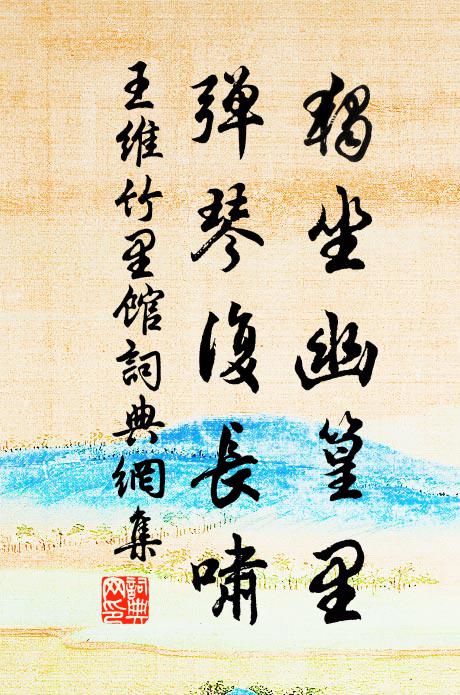 獨坐幽篁里
彈琴復長嘯
王維竹里館詞典網集